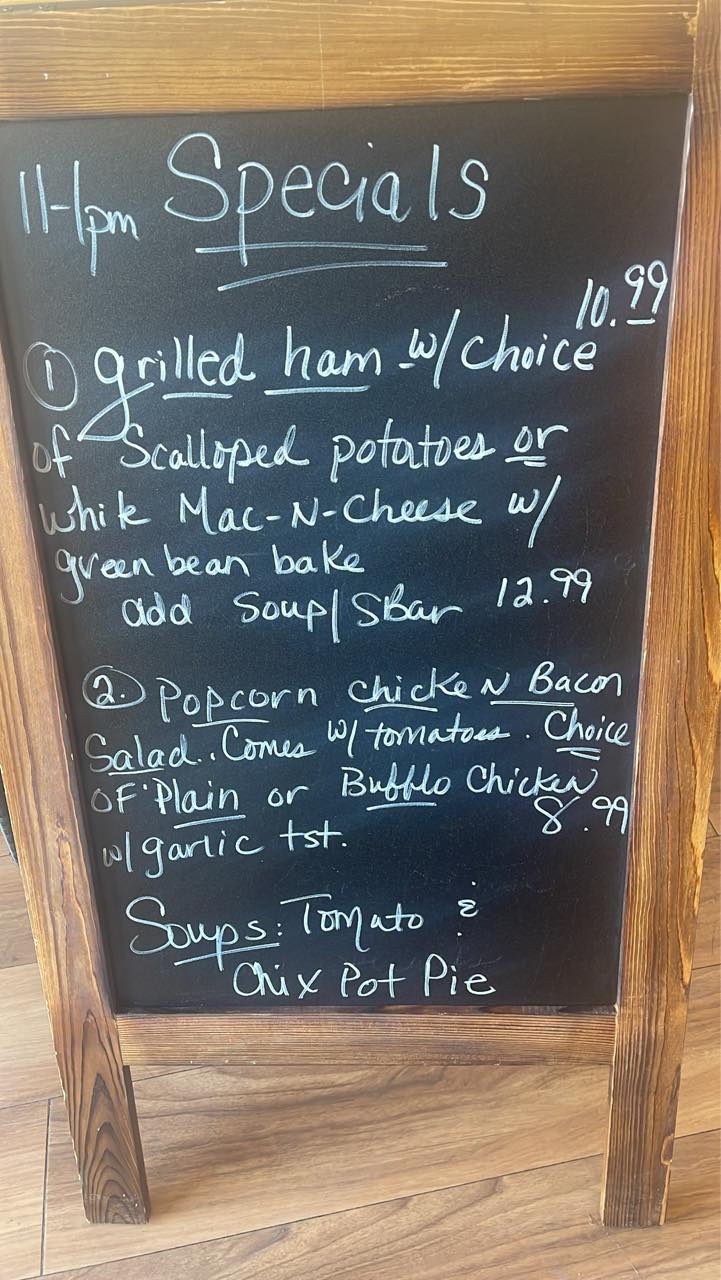 11-1pm Specials
10.99
① grilled ham w/ choice
of Scalloped potatoes or
white Mac-N-Cheese w/
green bean bake
add Soup/SBar 12.99
②. Popcorn chickeN Bacon
Salad. Comes w/ tomatoes. Choice
OF Plain or Bufflo Chicken
8.99
w/ garlic tst.
Soups: Tomato &
Chix Pot Pie